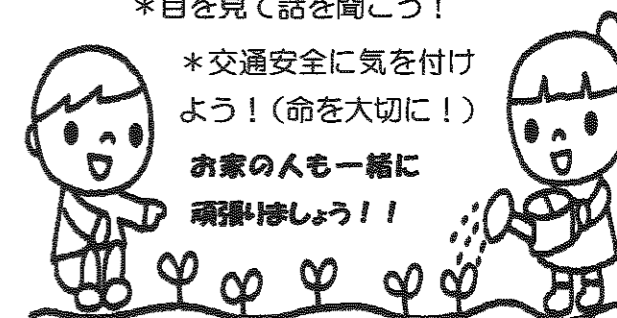 *目を見て話を聞こう!
*交通安全に気を付け
よう!(命を大切に!)
お家の人も一緒に
頑張りましょう!!